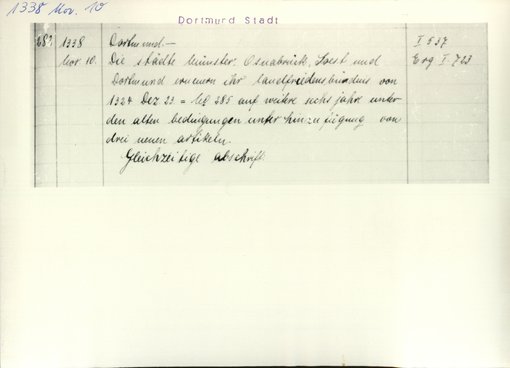 1338 Nov. 10
Dortmund Stadt
682 1338 Dortmund.— I 537
Nov. 10. Die städte Münster, Osnabrück, Soest und Erg I 763
Dortmund erneuern ihr landfriedensbündnis von
1324 Dez 23. = Nr 285 auf weitre sechs jahre unter
den alten bedingungen unter hinzufügung von
drei neuen artikeln.
Gleichzeitige abschrift